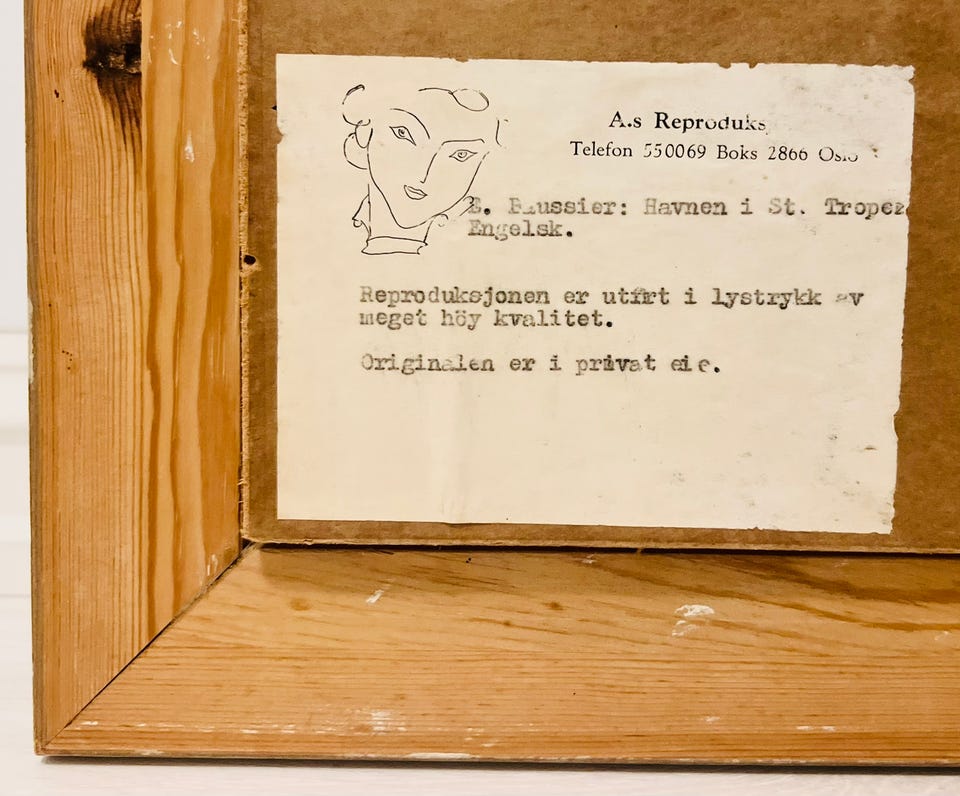 A.s Reproduks
Telefon 550069 Boks 2866 Oslo
E. : Havnen i St. Tropez
Engelsk.
Reproduksjonen er utført i lystrykk av
meget höy kvalitet.
Originalen er i privat eie.